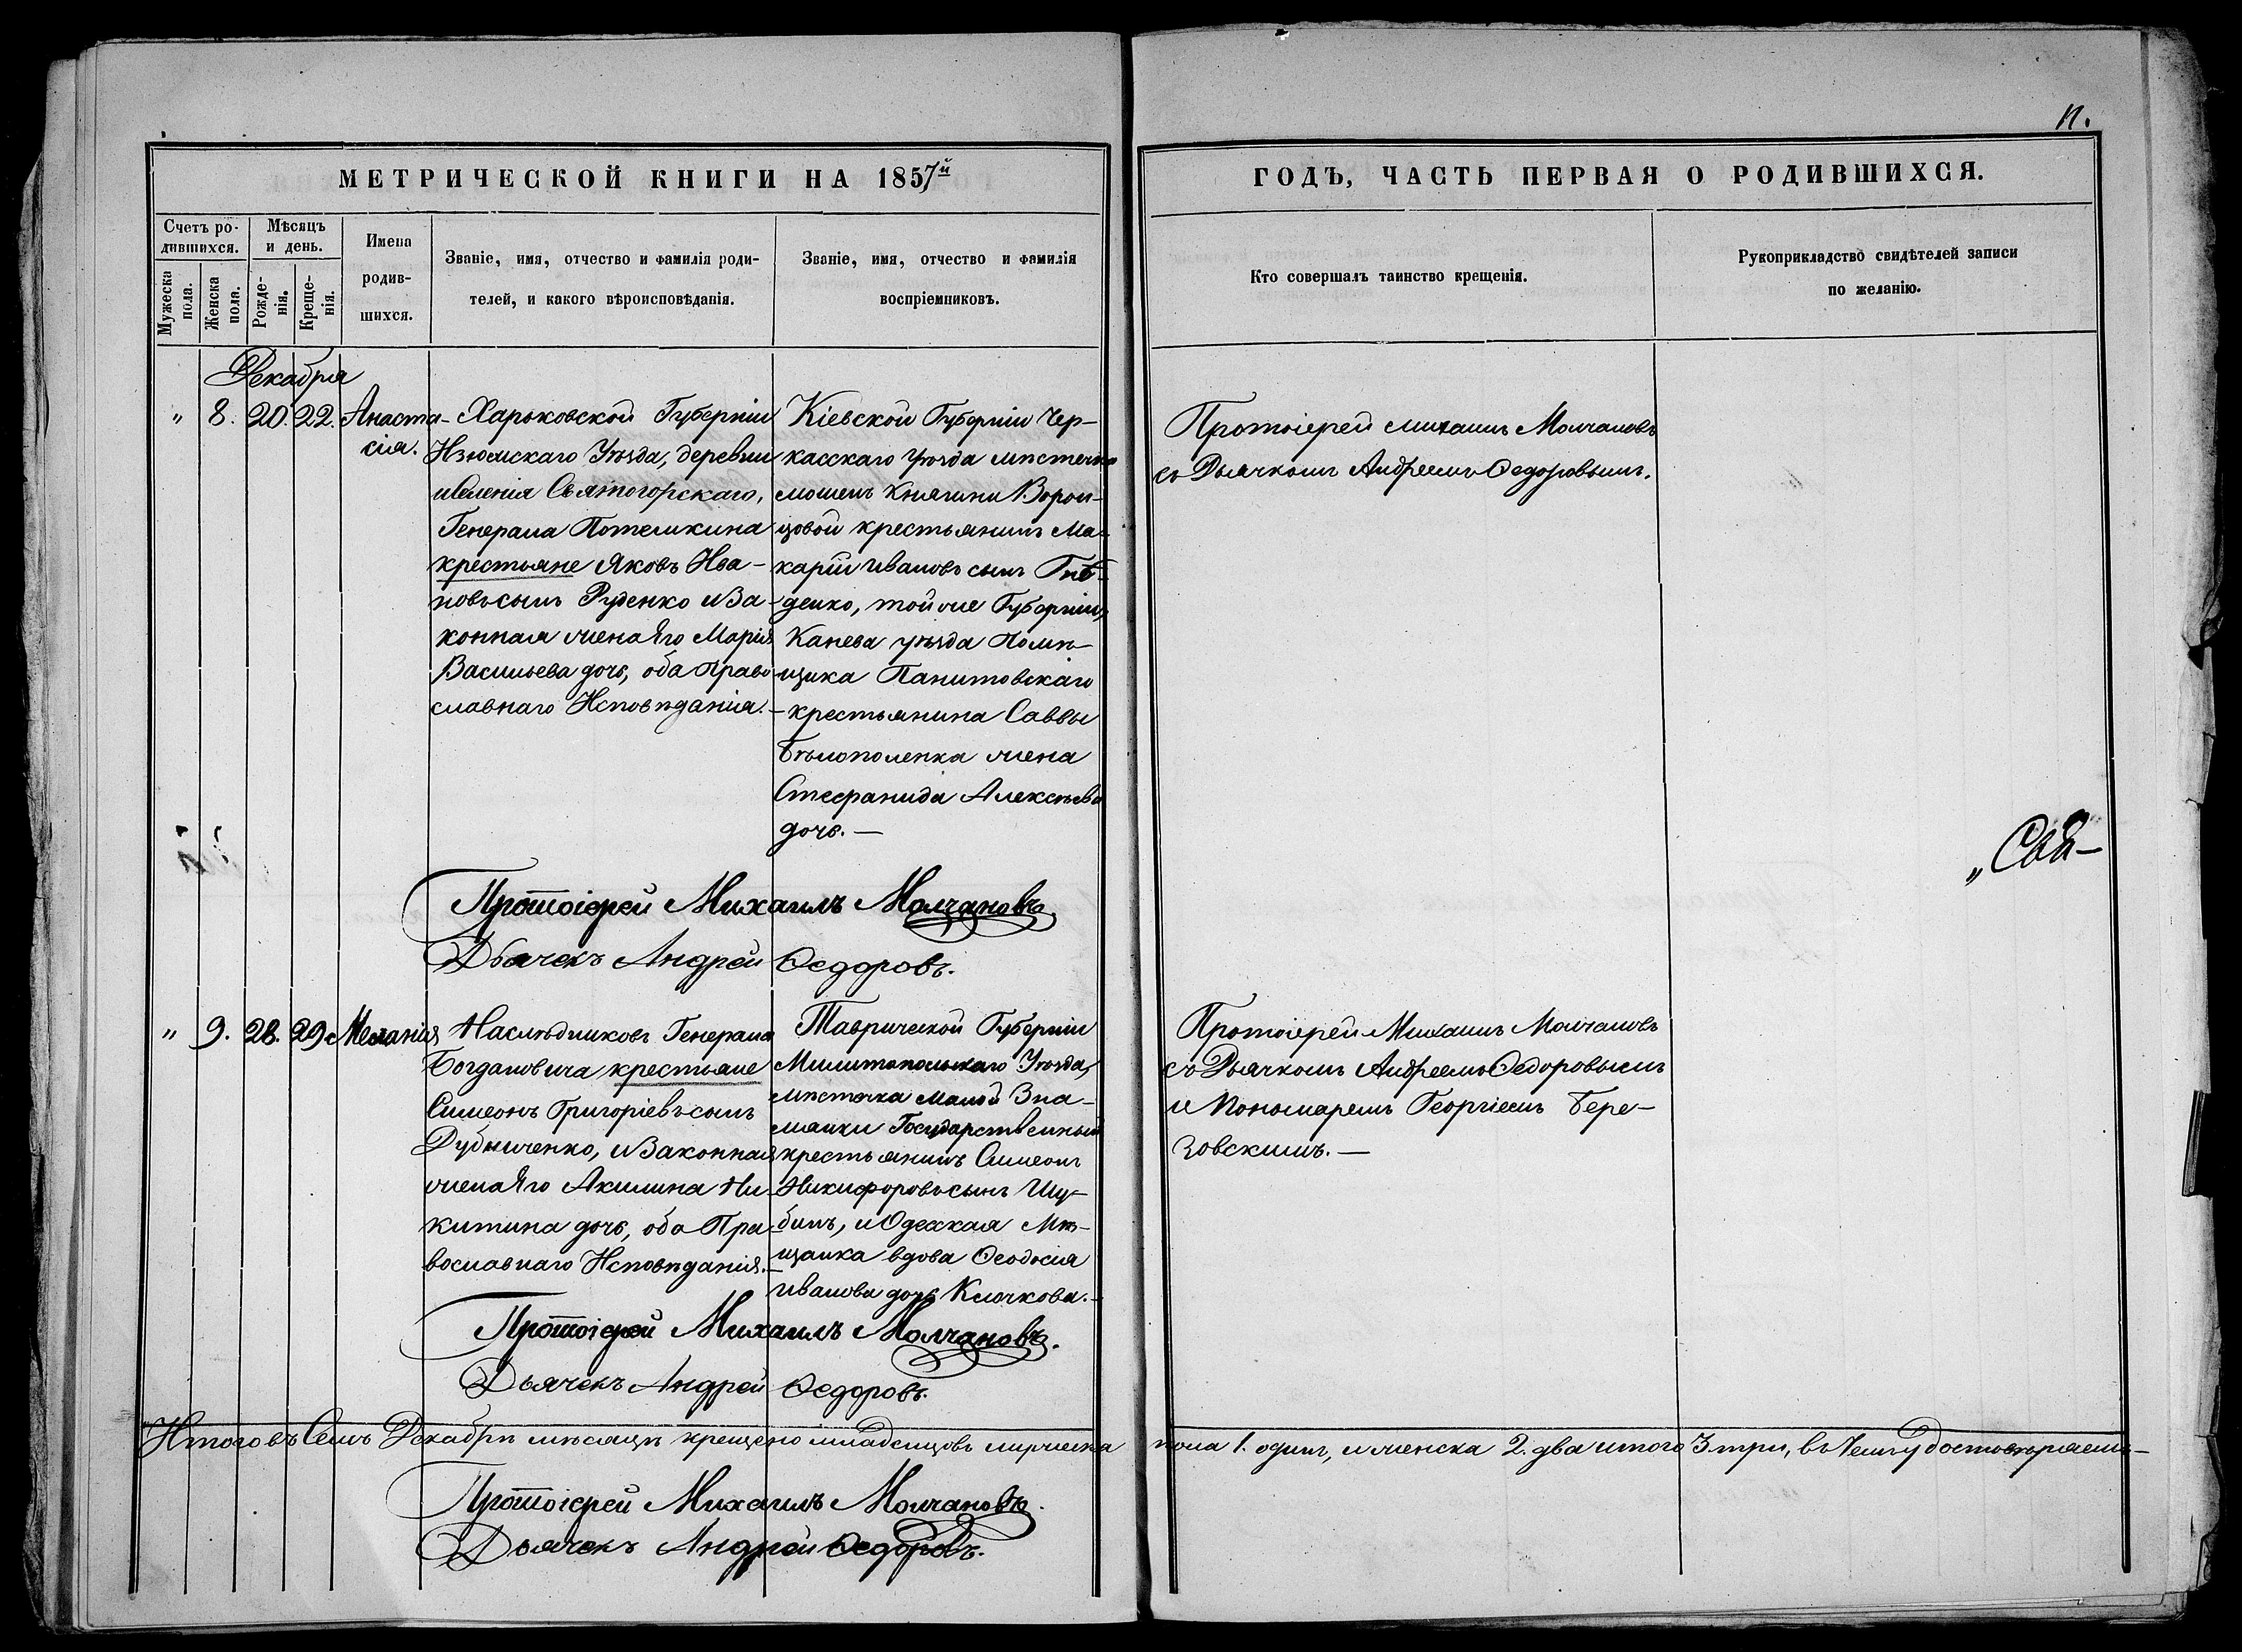 11.
МЕТРИЧЕСКОЙ КНИГИ НА 1857й
ГОДЪ, ЧАСТЬ ПЕРВАЯ О РОДИВШИХСЯ.
Счетъ ро-
дившихся.
Мужеска
пола.
Женска
пола.
Мѣсяцъ
и день.
Рожде-
нія.
Креще-
нія.
Имена
родив-
шихся.
Званіе, имя, отчество и фамилія роди-
телей, и какого вѣроисповѣданія.
Званіе, имя, отчество и фамилія
воспріемниковъ.
Кто совершалъ таинство крещенія.
Рукоприкладство свидѣтелей записи
по желанію.
Декабря
" 8. 20. 22. Анаста-
сія.
Харьковской Губерніи
Изюмскаго Уѣзда, деревни
имѣнія Святогорскаго,
Генерала Потемкина
крестьяне Яковъ Ива-
новъ сынъ Руденко и За-
конная жена Его Марія
Васильева дочь, оба Право-
славнаго Исповѣданія.-
Кіевской Губерніи Чер-
касскаго уѣзда мѣстечка
Мошенъ Княгини Ворон-
цовой крестьянинъ Ма-
карій Ивановъ сынъ Гнѣ-
денко, той же Губерніи,
Канева уѣзда Помѣ-
щика
крестьянина Саввы
Бѣлополенка жена
Стефанида Алексѣева
дочь.—
Протоіерей Михаилъ Молчановъ
съ Дьячкомъ Андреемъ Ѳедоровымъ.
Протоіерей Михаилъ Молчановъ
Дьячекъ Андрей Ѳедоровъ.
„Свя-
" 9. 28. 29. Меланія
Наслѣдниковъ Генерала
Богдановича крестьяне
Симеонъ Григоріевъ сынъ
Дубниченко, и Законная
жена Его Акилина Ни-
китина дочь, оба Пра-
вославнаго Исповѣданія.-
Таврической Губерніи
Милитопольскаго Уѣзда,
мѣстечка Малой Зна-
мянки Государственный
крестьянинъ Симеонъ
Никифоровъ сынъ Шу-
бинъ, и Одесская Мѣ-
щанка вдова Ѳеодосія
Иванова дочь Клочкова.-
Протоіерей Михаилъ Молчановъ
съ Дьячкомъ Андреемъ Ѳедоровымъ
и Пономаремъ Георгіемъ Бере-
зовскимъ.—
Протоіерей Михаилъ Молчановъ.
Дьячекъ Андрей Ѳедоровъ.
Итого въ Семъ Декабрѣ мѣсяцѣ крещено младенцовъ мужеска пола 1. одинъ, и женска 2. два итого 3. три, въ Чемъ удостовѣряемъ-
Протоіерей Михаилъ Молчановъ.
Дьячекъ Андрей Ѳедоровъ.